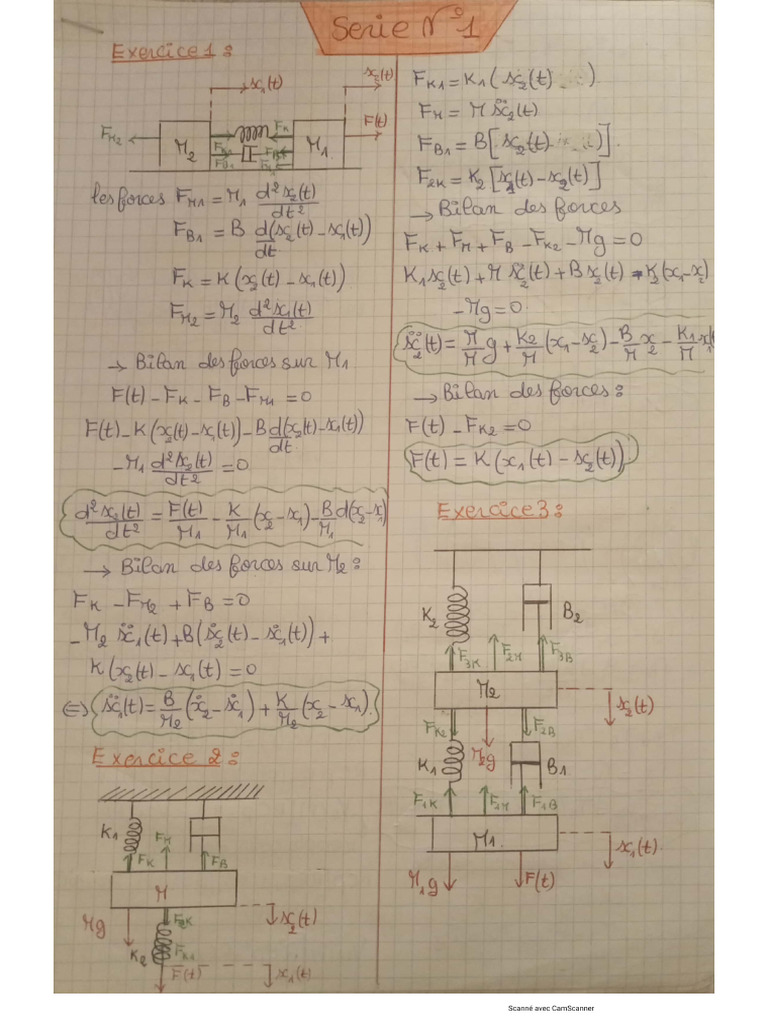 Serie N°1
Exercice 1 :
x₁(t)
x₂(t)
F_M2
M₂
F_K
F_K
F_B1
F_B
M₁
F(t)
les forces F_M1 = M₁ d²x₂(t)/dt²
F_B1 = B d(x₂(t) - x₁(t))/dt
F_K = K(x₂(t) - x₁(t))
F_M2 = M₂ d²x₁(t)/dt²
→ Bilan des forces sur M₁
F(t) - F_K - F_B - F_M1 = 0
F(t) - K(x₂(t) - x₁(t)) - B d(x₂(t) - x₁(t))/dt
- M₁ d²x₂(t)/dt² = 0
d²x₂(t)/dt² = F(t)/M₁ - K/M₁ (x₂ - x₁) - B/M₁ d(x₂ - x₁)
→ Bilan des forces sur M₂ :
F_K - F_M2 + F_B = 0
- M₂ ẍ₁(t) + B(ẋ₂(t) - ẋ₁(t)) +
K(x₂(t) - x₁(t) = 0
⇔ ẍ₁(t) = B/M₂ (ẋ₂ - ẋ₁) + K/M₂ (x₂ - x₁).
Exercice 2 :
K₁
F_K
F_M
F_B
M
Mg
F_2K
x₂(t)
K₂
F_K1
F(t)
x₁(t)
F_K1 = K₁(x₂(t) )
F_M = M ẍ₂(t)
F_B1 = B[ẋ₂(t) ].
F_2K = K₂[x₁(t) - x₂(t)]
→ Bilan des forces
F_K + F_M + F_B - F_K2 - Mg = 0
K₁x₂(t) + M ẍ₂(t) + Bẋ₂(t) - K₂(x₁ - x₂)
- Mg = 0.
ẍ₂(t) = M/M g + K₂/M (x₁ - x₂) - B/M ẋ₂ - K₁/M x₁(t)
→ Bilan des forces :
F(t) - F_K2 = 0
F(t) = K(x₁(t) - x₂(t)).
Exercice 3 :
K₂
B₂
F_3K
F_2M
F_3B
M₂
x₂(t)
F_K2
F_2B
K₁
M₂g
B₁
F_1K
F_1M
F_1B
M₁
x₁(t)
M₁g
F(t)
Scanné avec CamScanner